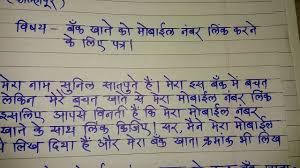 विषय - बँक खाते को मोबाईल नंबर लिंक करने
के लिए पत्र।
मेरा नाम सुनिल सातपुते हैं। मेरा इस बँक में बचत
लेकिन मेरे बचत खाते से मेरा मोबाईल नंबर लिंक
इसलिए आपसे विनती है कि मेरा मोबाईल नंबर
खाते के साथ लिंक किजिए। सर, मैंने मेरा मोबाईल
लिख दिया हैं और मेरा बँक खाता क्रमांक भी लिख